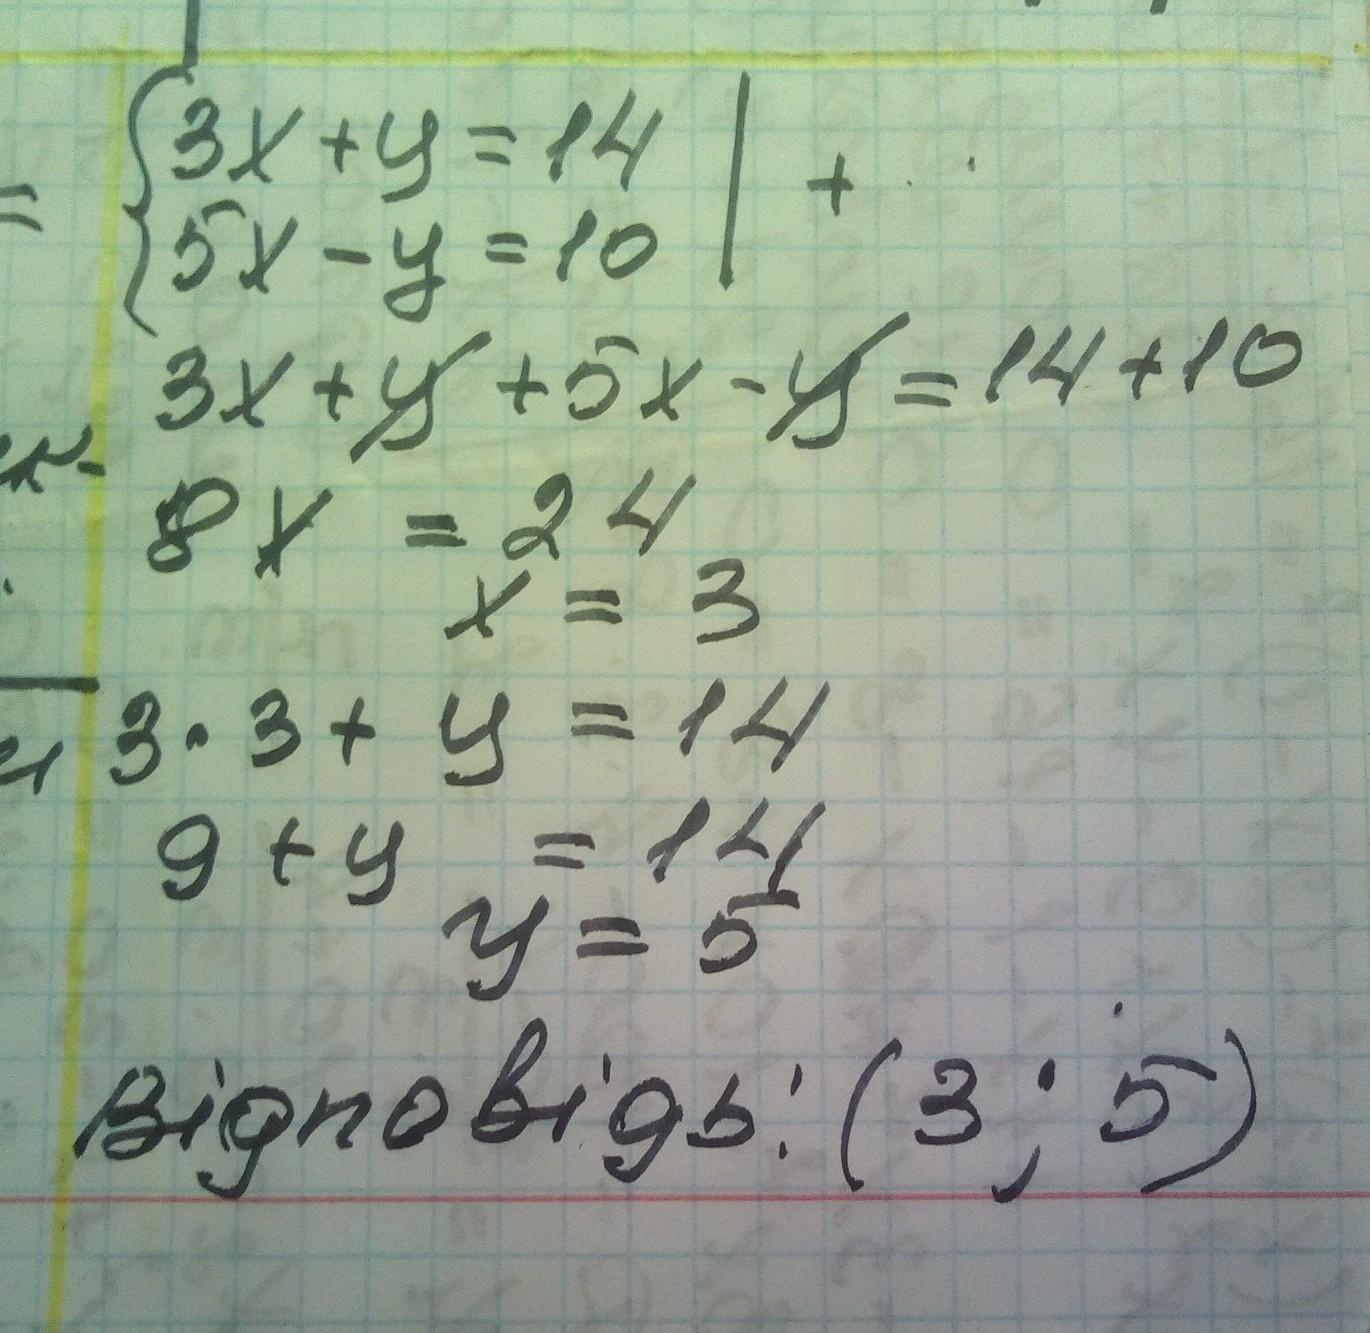 3x + y = 14 | +
5x - y = 10
3x + y + 5x - y = 14 + 10
8x = 24
x = 3
3 · 3 + y = 14
9 + y = 14
y = 5
Відповідь: (3; 5)